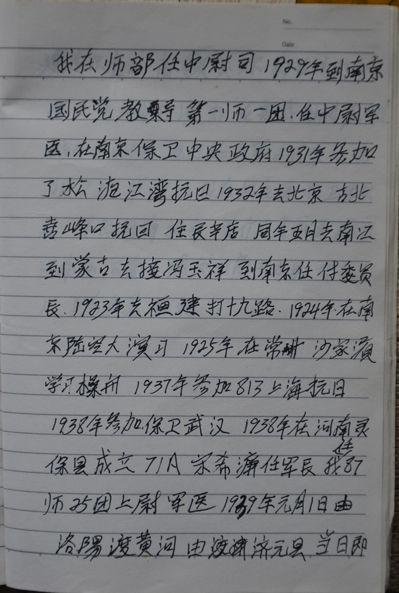 No.
Date
我在师部任中尉司 1929年到南京
国民党教导第一师一团.任中尉军
医,在南京保卫中央政府1931年参加
了松 江湾抗日1932年去北京 古北
峰口抗日 住长辛店 同年五月去南江
到蒙古去接冯玉祥 到南京任付委员
长.1923年去 建打十九路.1924年在南
京陆空大演习 1925年在常 沙家滨
学习操舟 1937年参加813上海抗日
1938年参加保卫武汉 1938年在河南灵
保县成立71A 宋希濂任军长 我任87
师25团上尉军医 1939年元月1日由
洛陽渡黄河 由 济元县 当日即